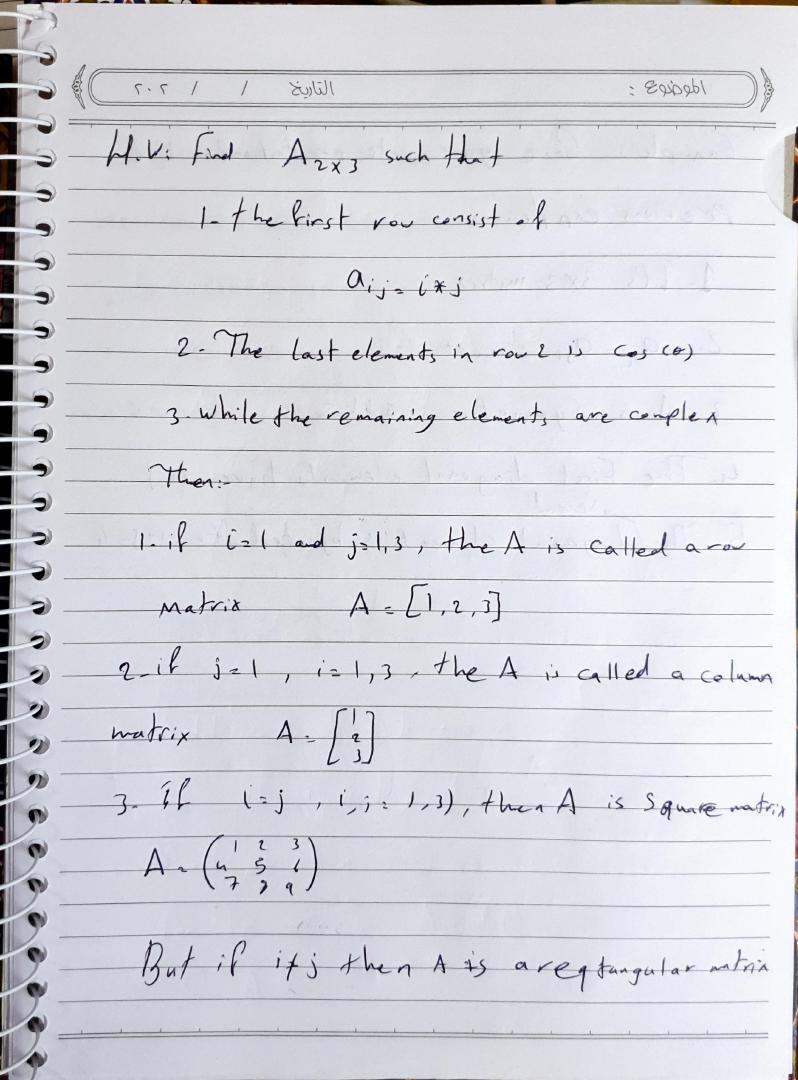 الموضوع :  التاريخ  /  /  ٢٠٢
H.W: Find A₂ₓ₃ such that
1- the first row consist of
aᵢⱼ = i*j
2- The last elements in row 2 is cos(θ)
3- while the remaining elements are complex
Then:-
1- if i=1 and j=1,3, the A is called a row
Matrix A = [1,2,3]
2- if j=1, i=1,3, the A is called a column
matrix A = [1
2
3]
3- If (i=j, i,j=1,3), then A is Square matrix
A = (1 2 3
4 5 6
7 8 9)
But if i≠j then A is a reqtangular matrix